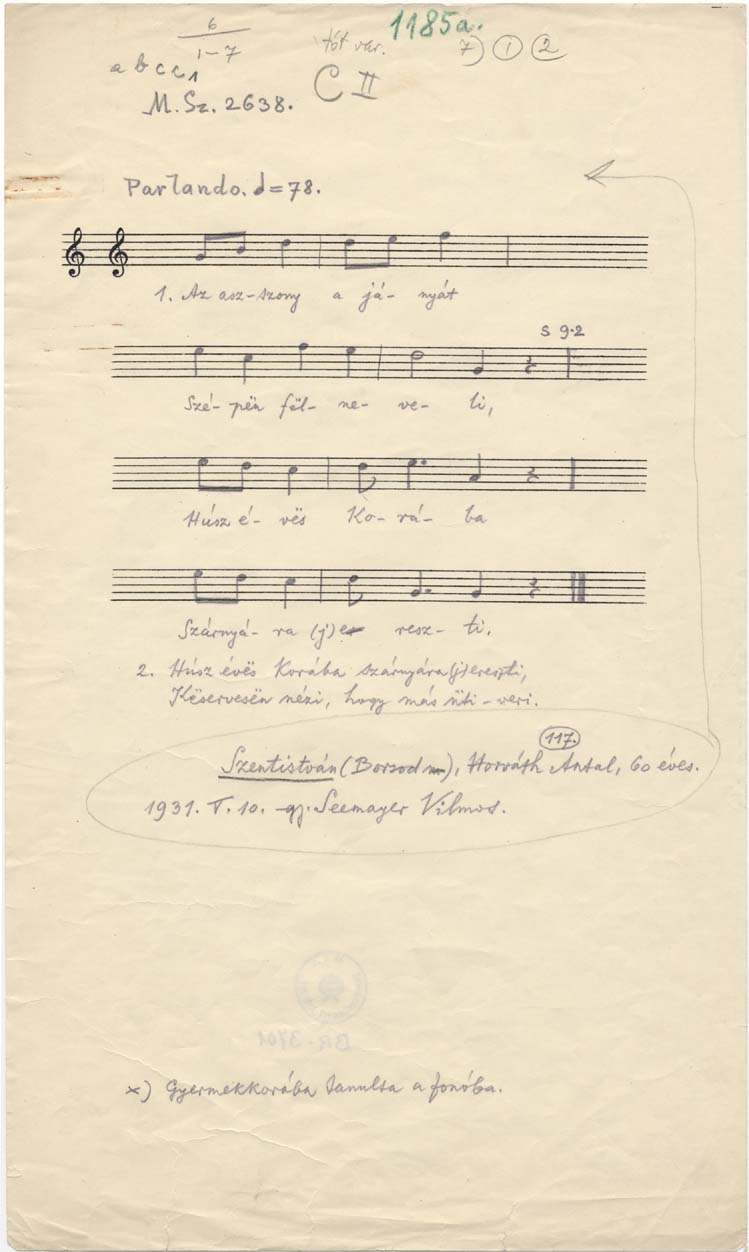 6
1-7
tót var.
1185a.
7) 1 2
a b c c1
C II
M. Sz. 2638.
Parlando. ♩=78.
1. Az asz-szony a já- nyát
S 9·2
Szé- pën fël- ne- ve- li,
Húsz é- vës Ko- rá- ba
Szárnyá- ra (j)e resz- ti.
2. Húsz évës Korába szárnyára(j)ereszti,
Këservesën nézi, hogy más üti-veri.
117.
Szentistván (Borsod m), Horváth Antal, 60 éves.
1931. V. 10. gy. Seemayer Vilmos.
BR-3701
x) Gyermekkorába tanulta a fonóba.